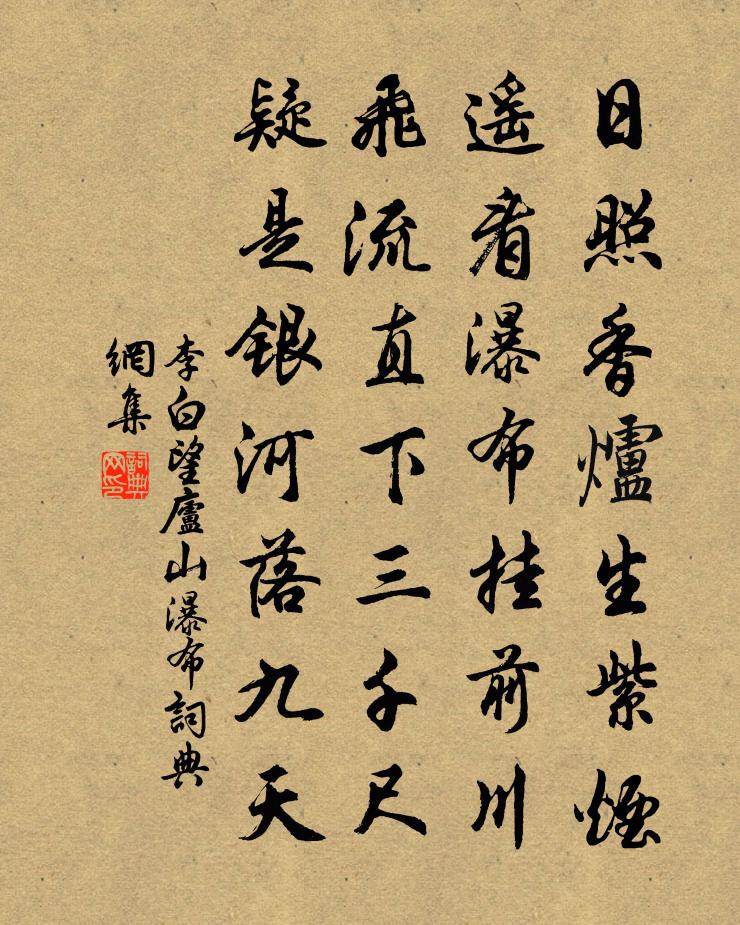 日照香爐生紫煙
遥看瀑布挂前川
飛流直下三千尺
疑是銀河落九天
李白望廬山瀑布詞典
網集
詞典
网印